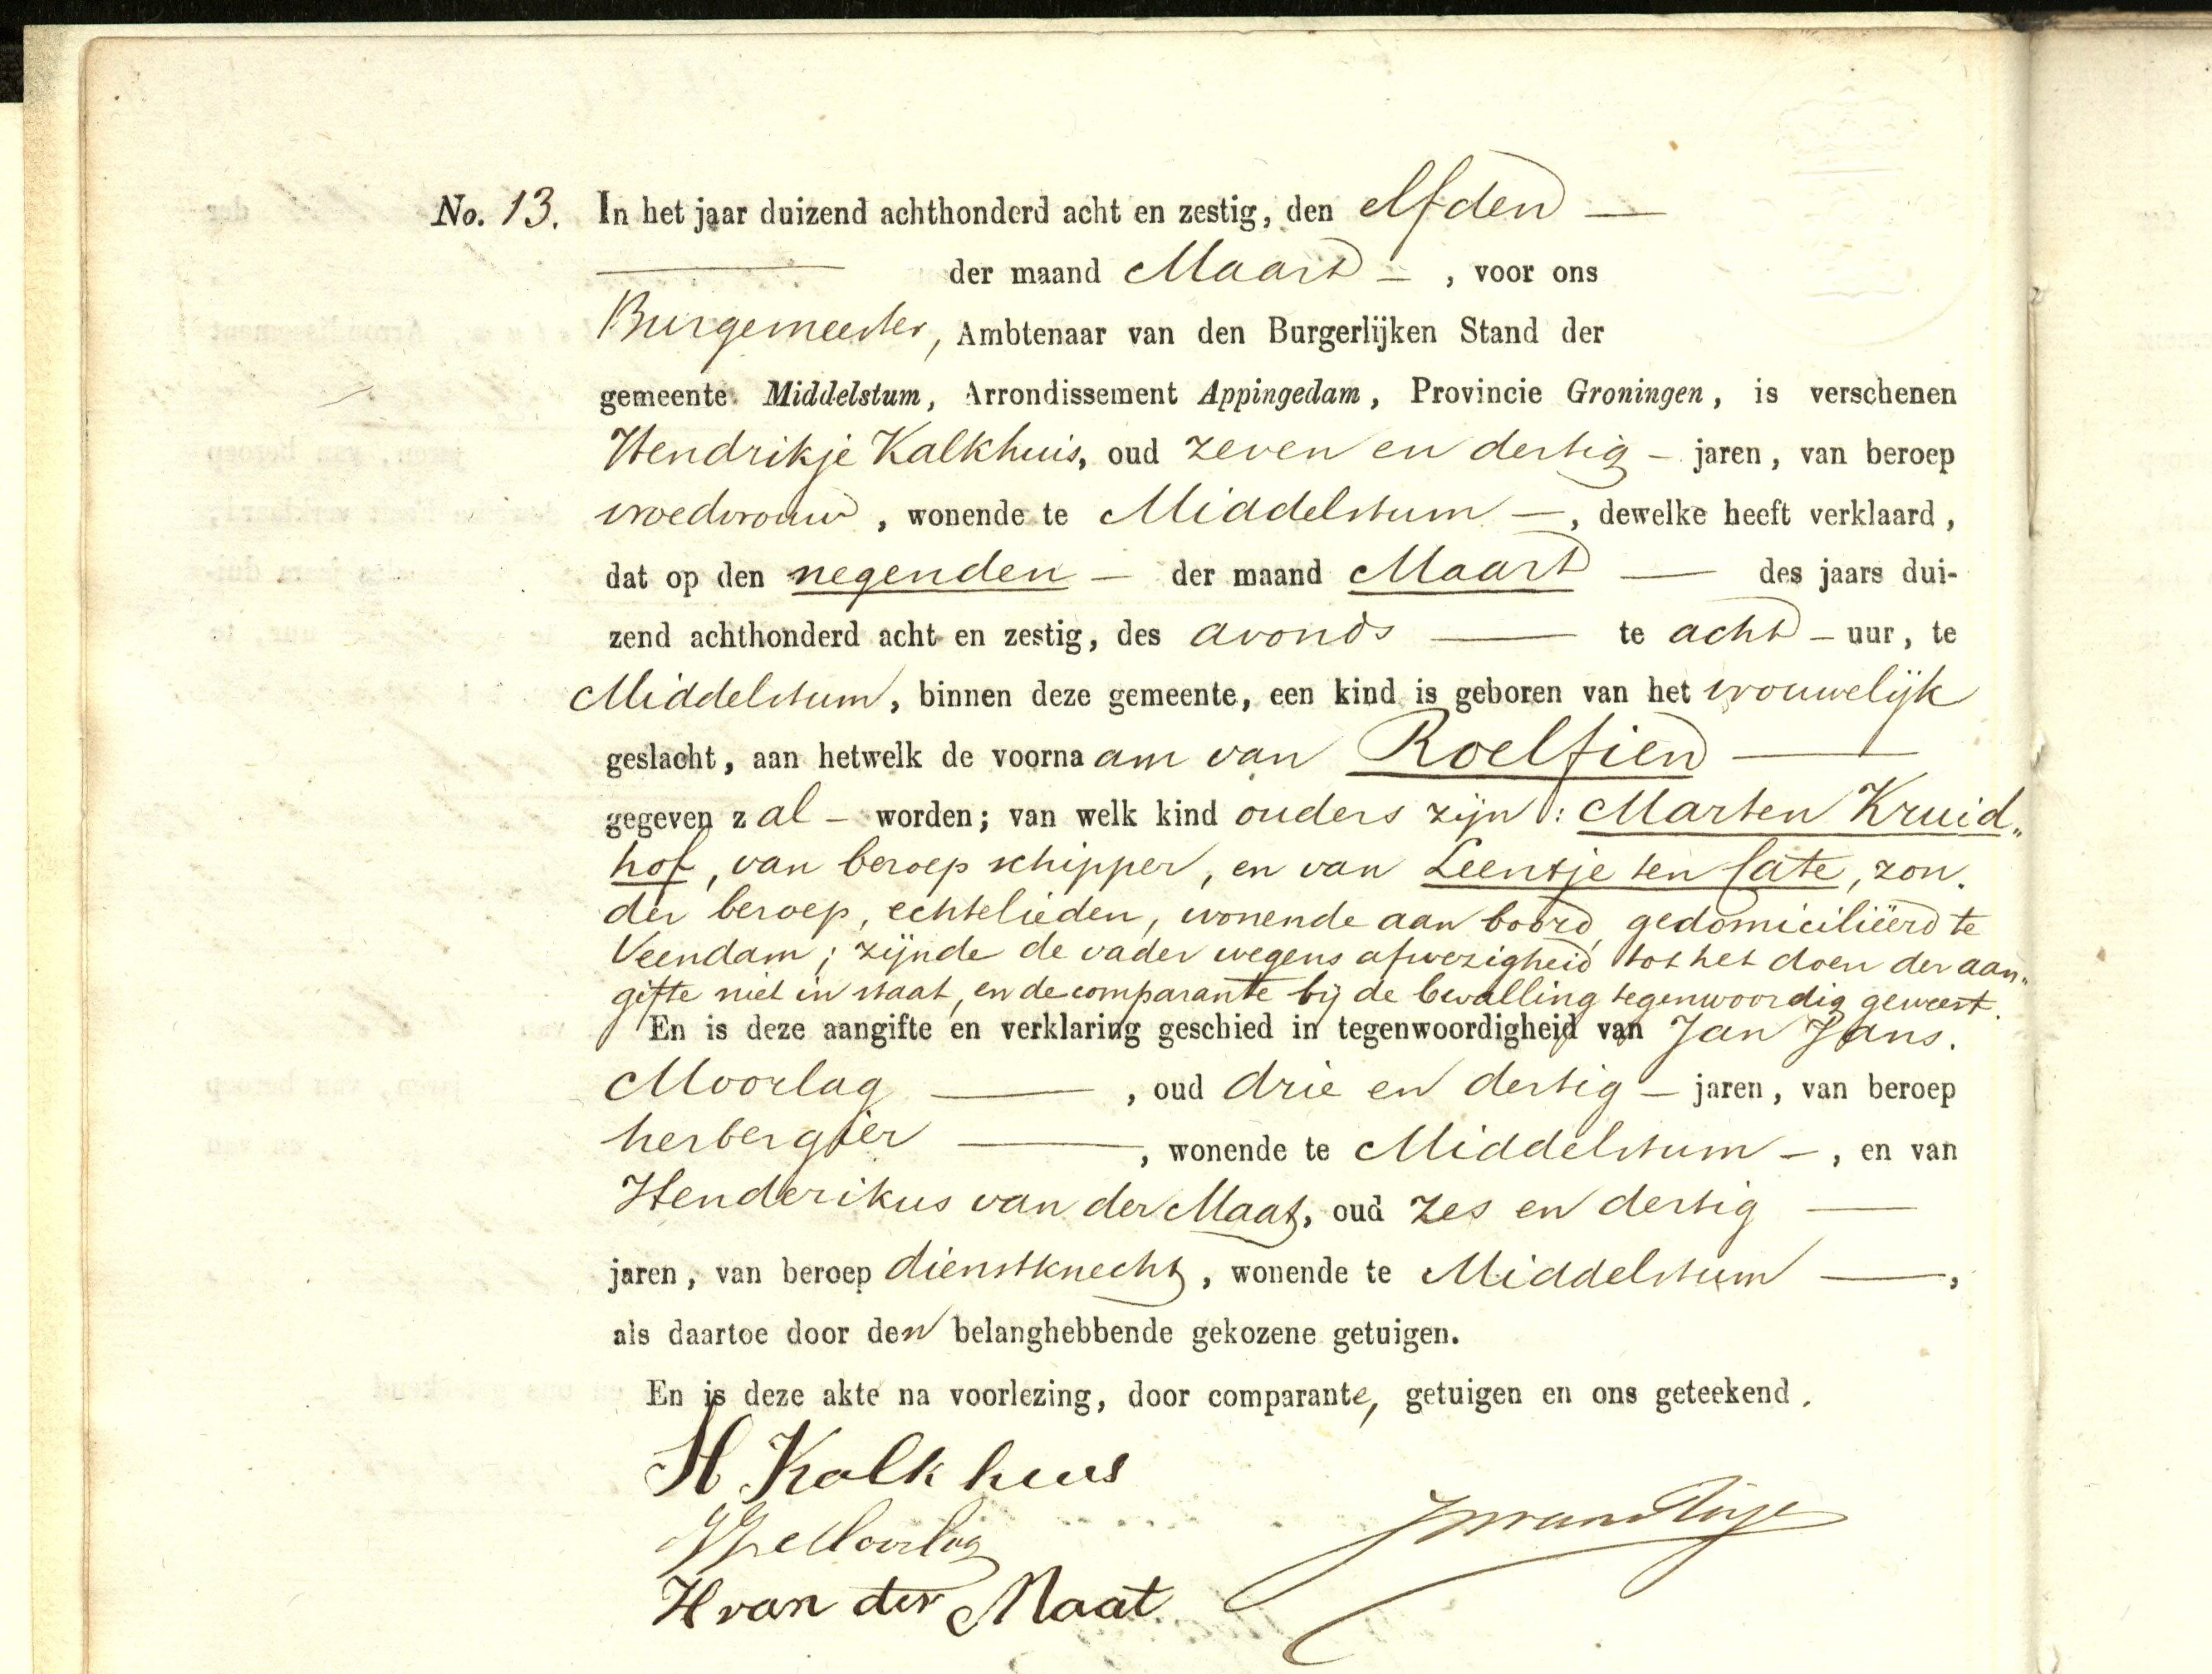 No. 13. In het jaar duizend achthonderd acht en zestig, den elfden —
— der maand Maart — , voor ons
Burgemeester, Ambtenaar van den Burgerlijken Stand der
gemeente Middelstum, Arrondissement Appingedam, Provincie Groningen, is verschenen
Hendrikje Kalkhuis, oud zeven en dertig — jaren, van beroep
vroedvrouw, wonende te Middelstum —, dewelke heeft verklaard,
dat op den negenden — der maand Maart — des jaars dui-
zend achthonderd acht en zestig, des avonds — te acht — uur, te
Middelstum, binnen deze gemeente, een kind is geboren van het vrouwelijk
geslacht, aan hetwelk de voornaam van Roelfien —
gegeven zal — worden; van welk kind ouders zijn: Marten Kruid„
hof, van beroep schipper, en van Leentje ten Cate, zon.
der beroep, echtelieden, wonende aan boord, gedomiciliëerd te
Veendam; zijnde de vader wegens afwezigheid tot het doen der aan„
gifte niet in staat, en de comparante bij de bevalling tegenwoordig geweest.
En is deze aangifte en verklaring geschied in tegenwoordigheid van Jan Jans.
Moorlag — , oud drie en dertig — jaren, van beroep
herbergier —, wonende te Middelstum —, en van
Henderikus van der Maat, oud zes en dertig —
jaren, van beroep dienstknecht, wonende te Middelstum —,
als daartoe door den belanghebbende gekozene getuigen.
En is deze akte na voorlezing, door comparante, getuigen en ons geteekend.
H Kalkhuis
JJ Moorlag
H van der Maat